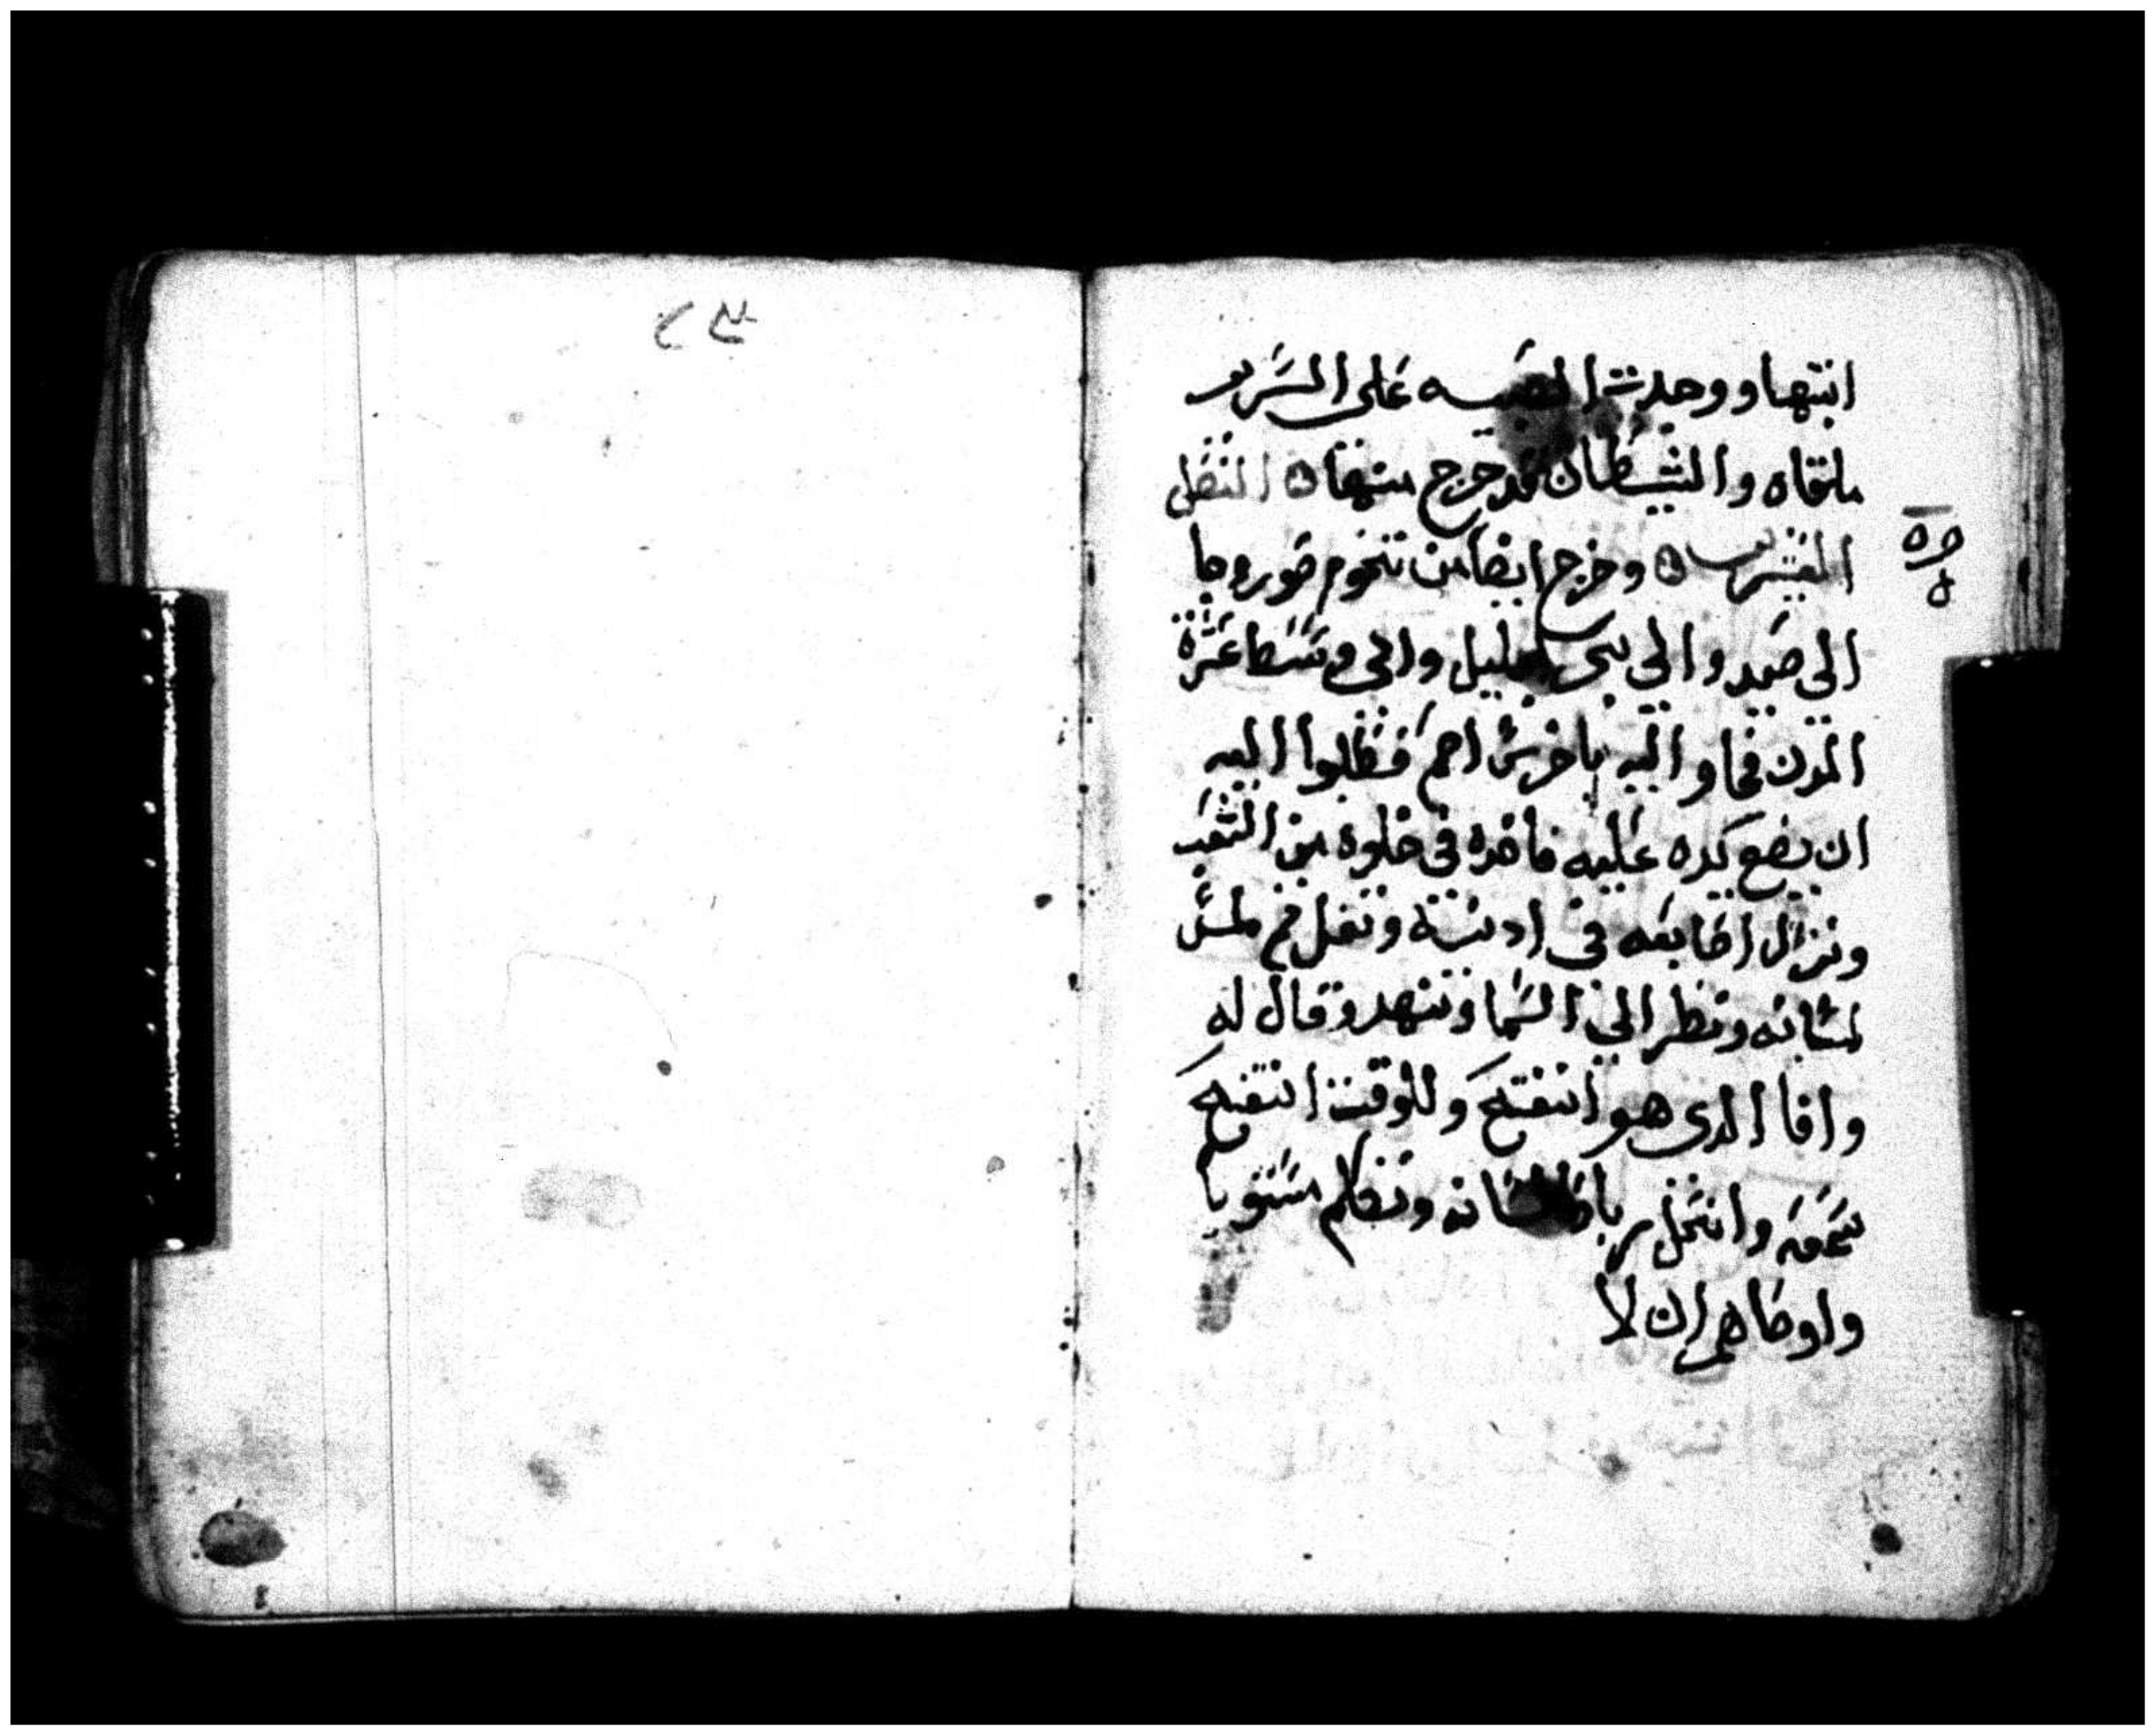 بيتها ووجدت الصبيه على السرير
ملقاه والشيطان قد خرج منها ۞ الفصل
العشرين ۞ وخرج ايضا من تخوم صور وجا
الى صيد والى بحر الجليل والى وسط عشرة
المدن فجاو اليه باخرس اصم فطلبوا اليه
ان يضع يده عليه فاخده في خلوة من الشعب
وترك اصابعه في ادنيه وتفل ثم لمس
لسانه ونظر الى السما وتنهد وقال له
وافاا الدى هو انفتح وللوقت انفتح
سمعه وانحل رباط لسانه وتكلم مستويا
واوصاهم ان لا